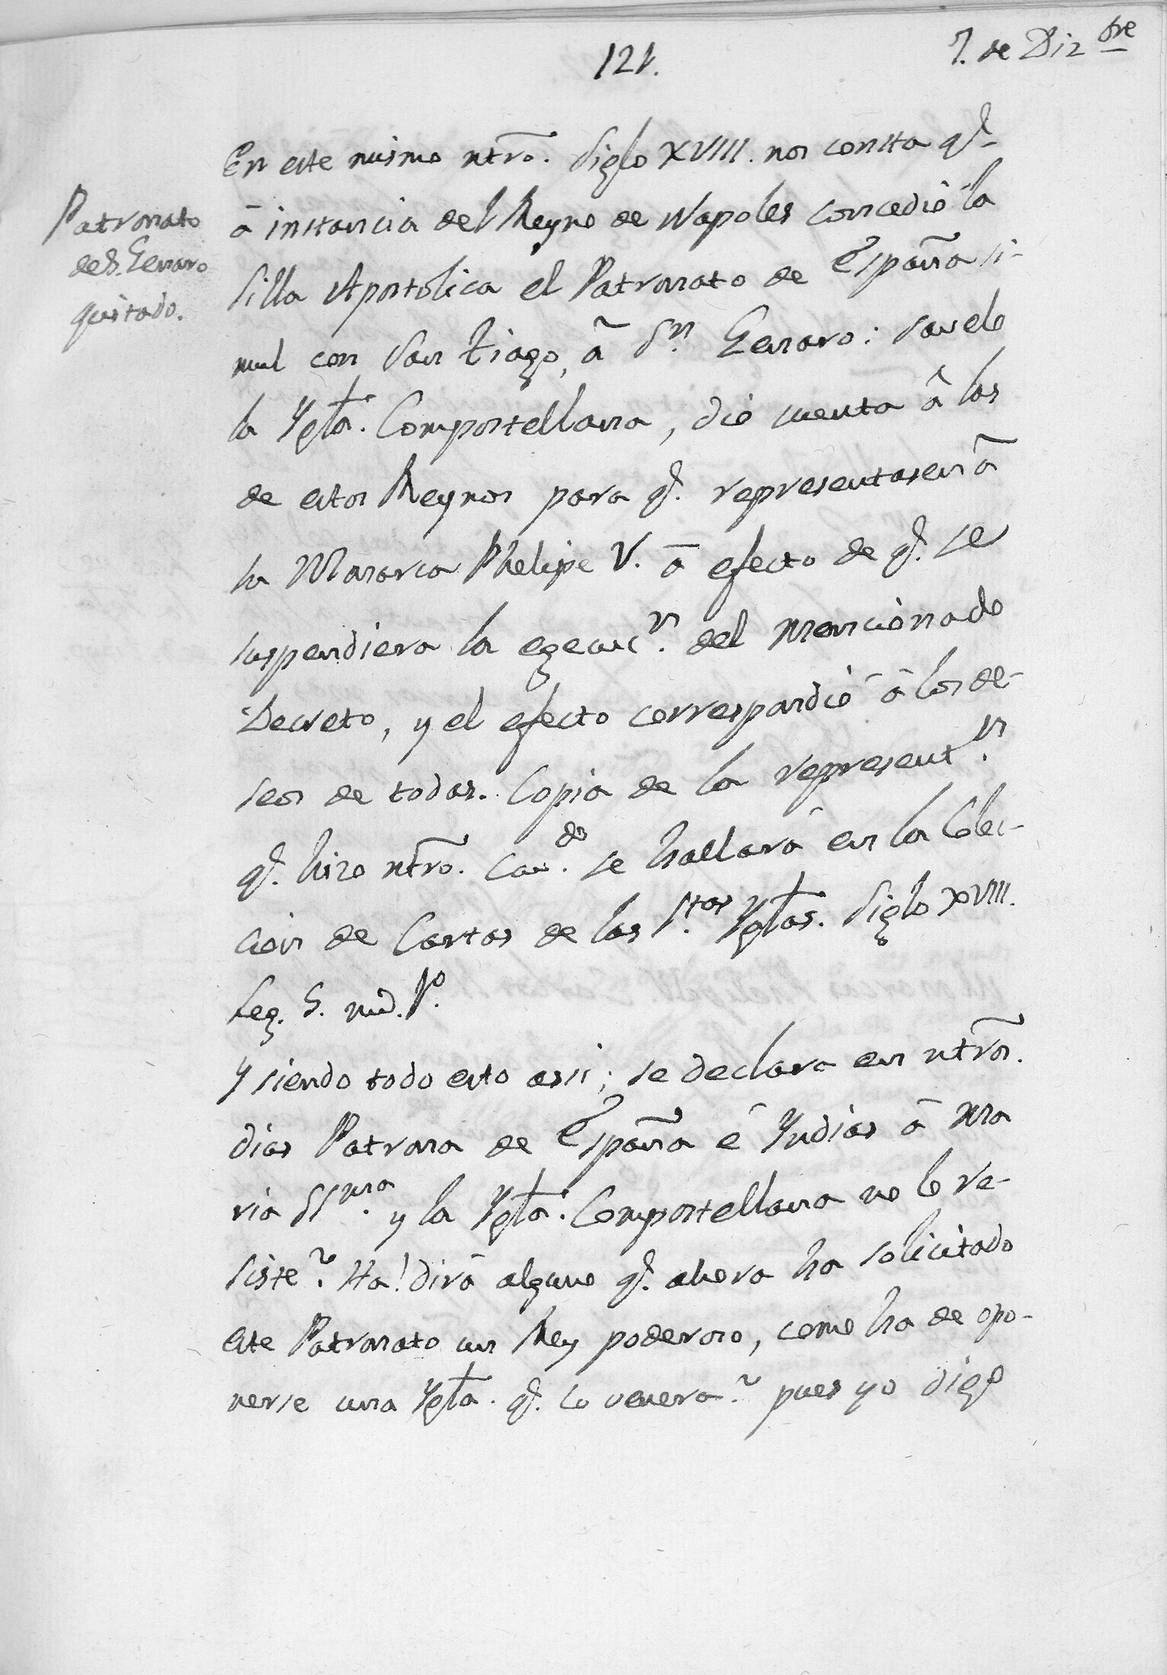 121.
7. de Diz.bre
Patronato
de S. Genaro
quitado.
En este mismo ntro. Siglo XVIII. nos consta q.
â instancia del Reyno de Napoles concedió la
Silla Apostolica el Patronato de España si-
mul con San Tiago, â Sn. Genaro: savelo
la Ygla. Compostellana, dió cuenta â las
de estos Reynos para q. representasen â
la Monarca Phelipe V. â efecto de q. se
suspendiera la egecucn. del mencionado
Decreto, y el efecto correspondió â los de-
seos de todas. Copia de la representn.
q. hizo ntro. Cav.do se hallará en la Colec-
cion de Cartas de las Stas. Yglas. Siglo XVIII.
Leg. 5. nu. 1º.
Y siendo todo esto assi; se declara en ntros.
dias Patrona de España é Yndias â Ma
ria SSma. y la Ygla. Compostellana no lo re-
siste? Ha! dirá alguno q. ahora ha solicitado
este Patronato un Rey poderoso, como ha de opo-
nerse una Ygla. q. lo venera? pues yo digo